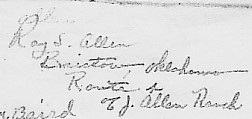 Allen
Roy S. Allen
Bristow, Oklahoma
Route 1
% J. Allen Ranch
Baird